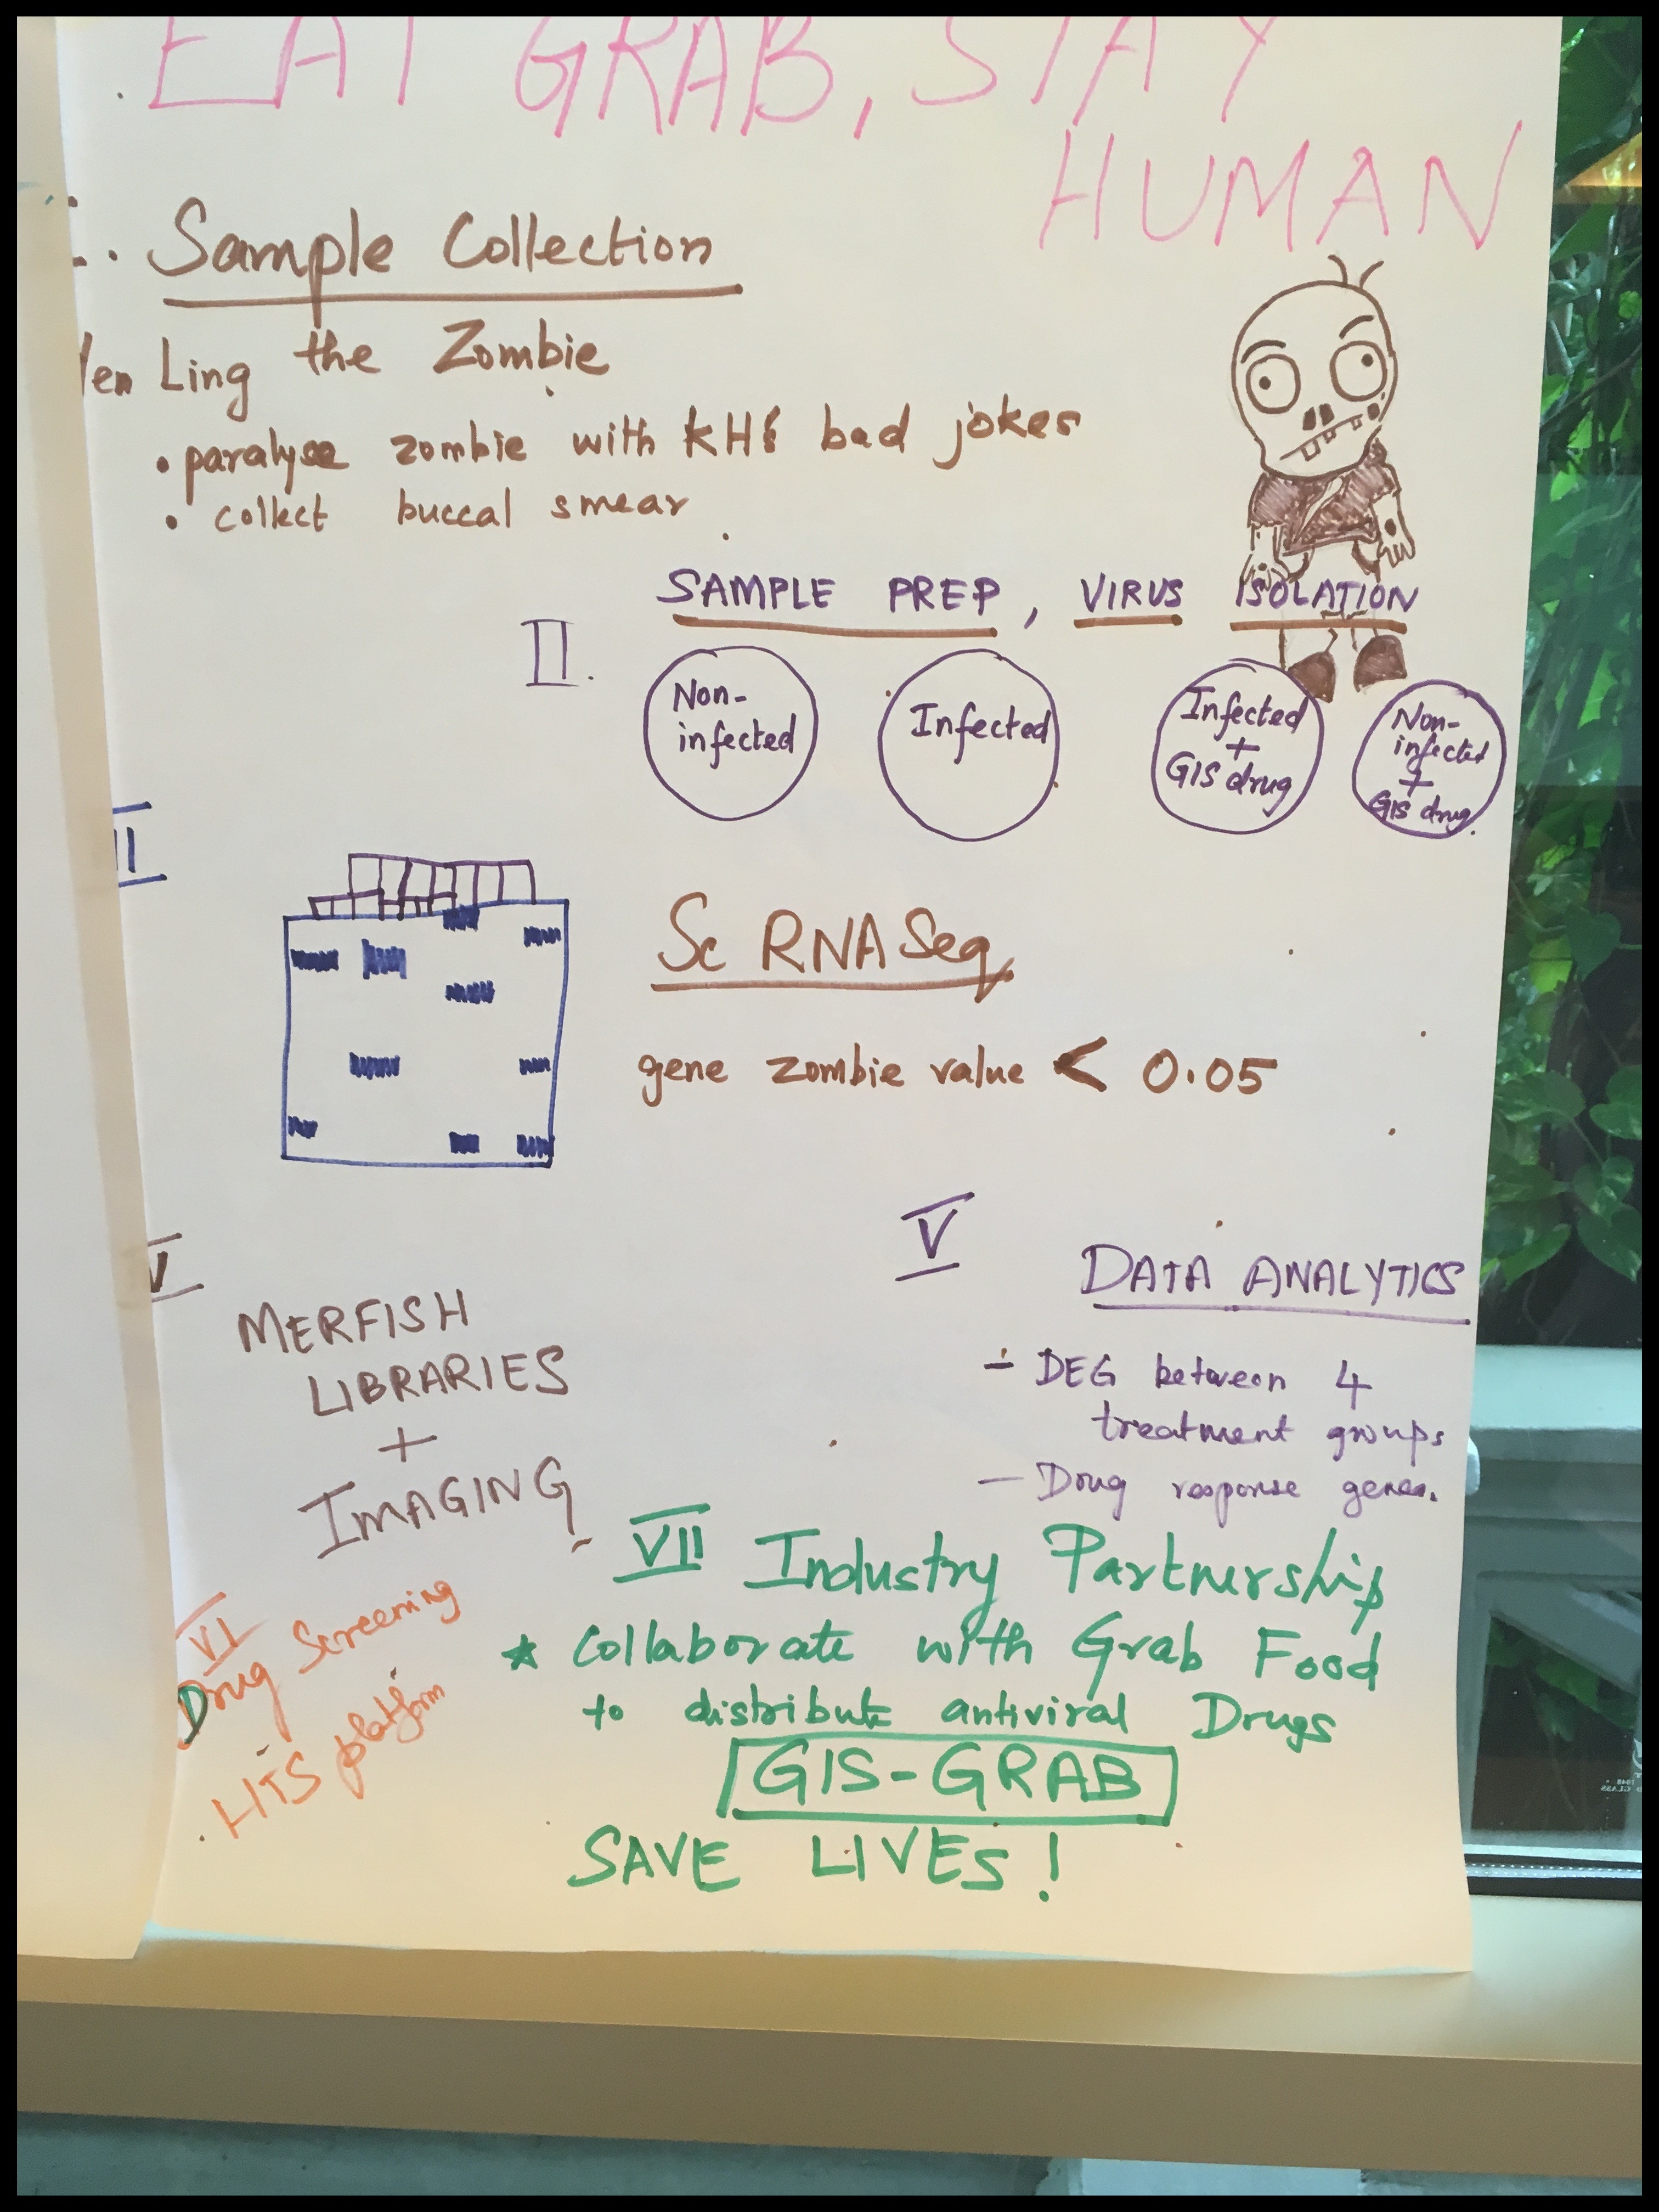 EAT GRAB, STAY
HUMAN
Sample Collection
Ling the Zombie
• paralyse zombie with KH's bad jokes
• collect buccal smear
II. SAMPLE PREP, VIRUS ISOLATION
Non-
infected
Infected
Infected
+
GIS drug
Non-
infected
+
GIS drug.
II
Sc RNASeq
gene zombie value < 0.05
V
MERFISH
LIBRARIES
+
IMAGING
V
DATA ANALYTICS
- DEG between 4
treatment groups
- Drug response genes.
VI
Drug Screening
HTS platform
VII Industry Partnership
* Collaborate with Grab Food
to distribute antiviral Drugs
GIS-GRAB
SAVE LIVES!